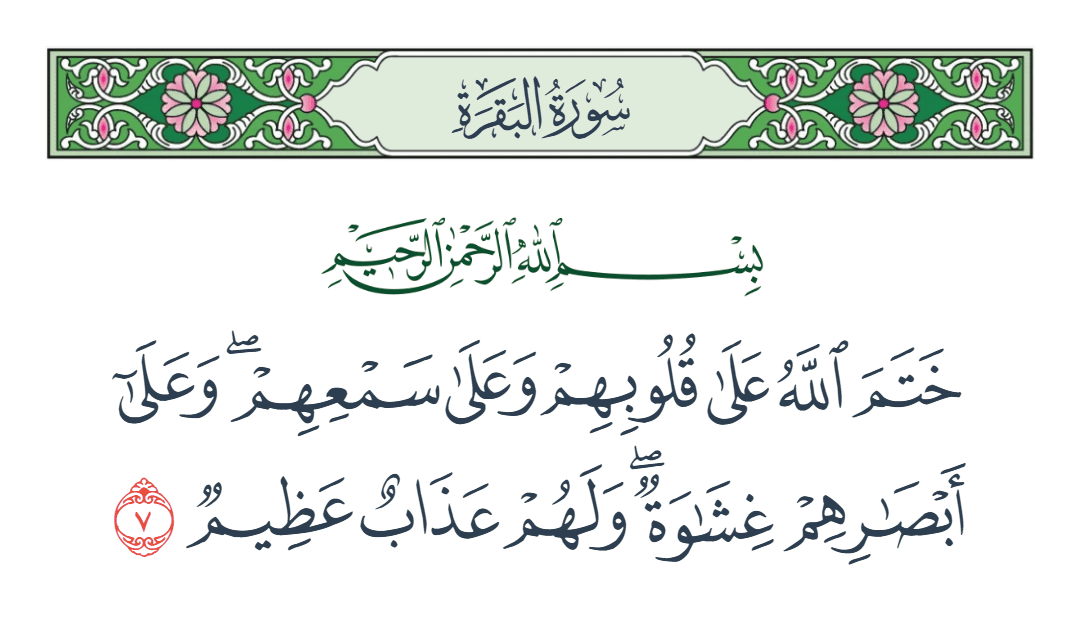 سُورَةُ البَقَرَةِ
بِسْمِ ٱللَّهِ ٱلرَّحْمَٰنِ ٱلرَّحِيمِ
خَتَمَ ٱللَّهُ عَلَىٰ قُلُوبِهِمْ وَعَلَىٰ سَمْعِهِمْۖ وَعَلَىٰٓ
أَبْصَٰرِهِمْ غِشَٰوَةٌۖ وَلَهُمْ عَذَابٌ عَظِيمٌ ٧